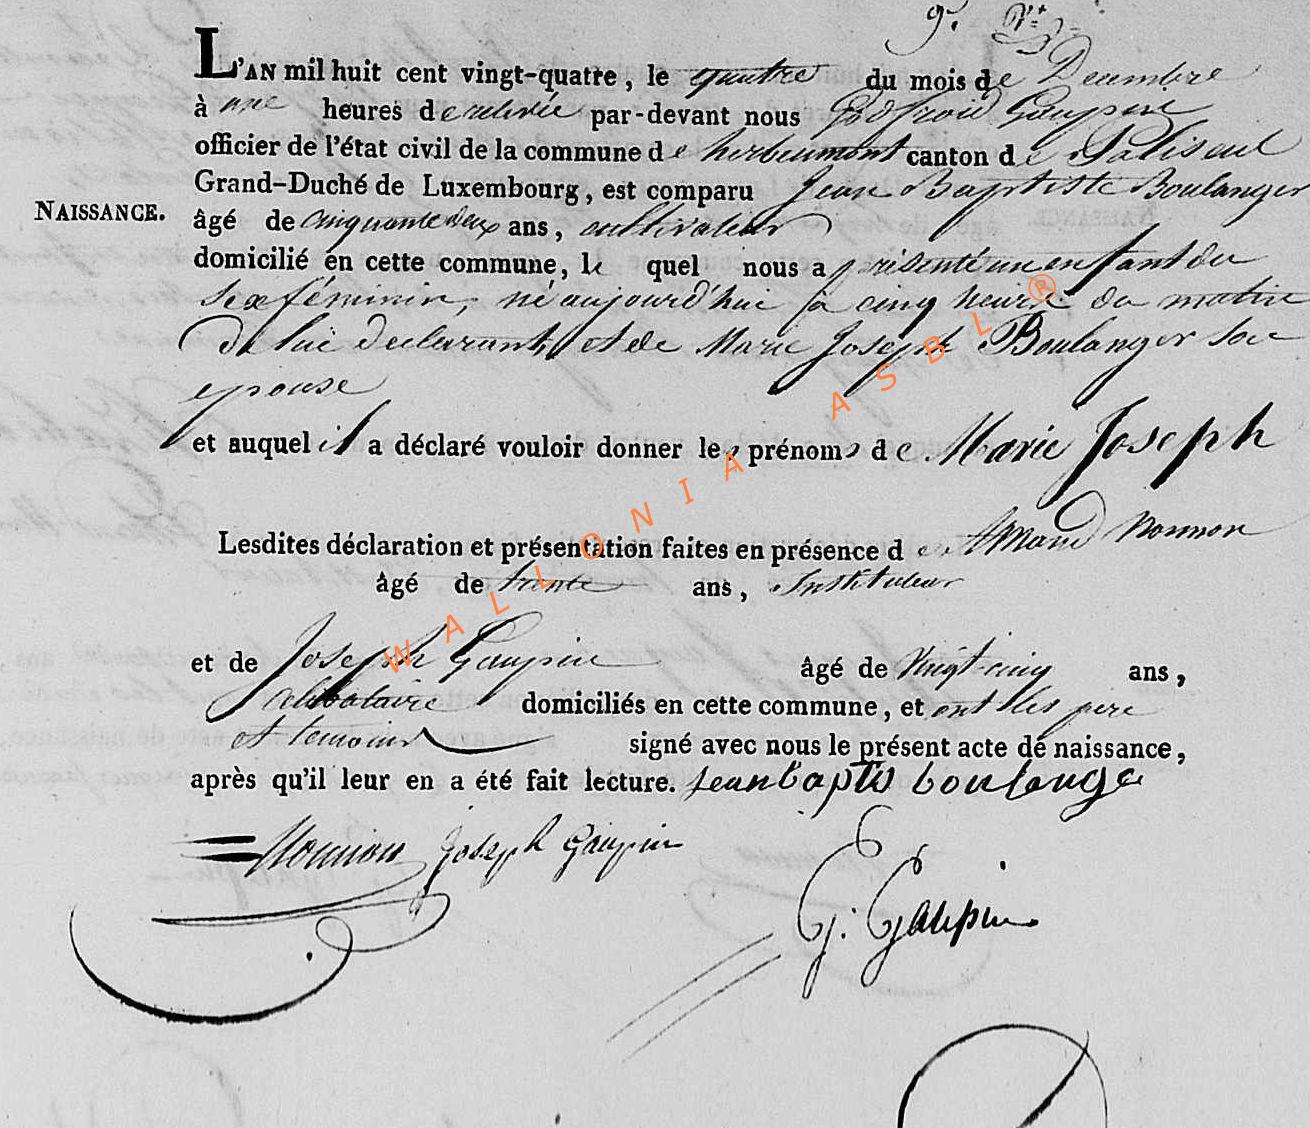 9.
L'AN mil huit cent vingt-quatre, le quatre du mois de Decembre
à une heures de relevée par-devant nous Godfroid Gaupin
officier de l'état civil de la commune de herbeumont canton de Paliseul
Grand-Duché de Luxembourg, est comparu Jean Baptiste Boulanger
NAISSANCE.
âgé de cinquante deux ans, cultivateur
domicilié en cette commune, le quel nous a présenté un enfant du
sexe féminin, né aujourd'hui à cinq heure du matin
de lui declarant, et de Marie Joseph Boulanger son
epouse
et auquel il a déclaré vouloir donner les prénoms de Marie Joseph
Lesdites déclaration et présentation faites en présence de Amand Monnon
âgé de trente ans, Instituteur
et de Joseph Gaupin âgé de vingt cinq ans,
celibataire domiciliés en cette commune, et ont les pere
et temoins signé avec nous le présent acte de naissance,
après qu'il leur en a été fait lecture. jean baptis boulange
Monnon Joseph Gaupin
G: Gaupin
WALLONIA ASBL ®